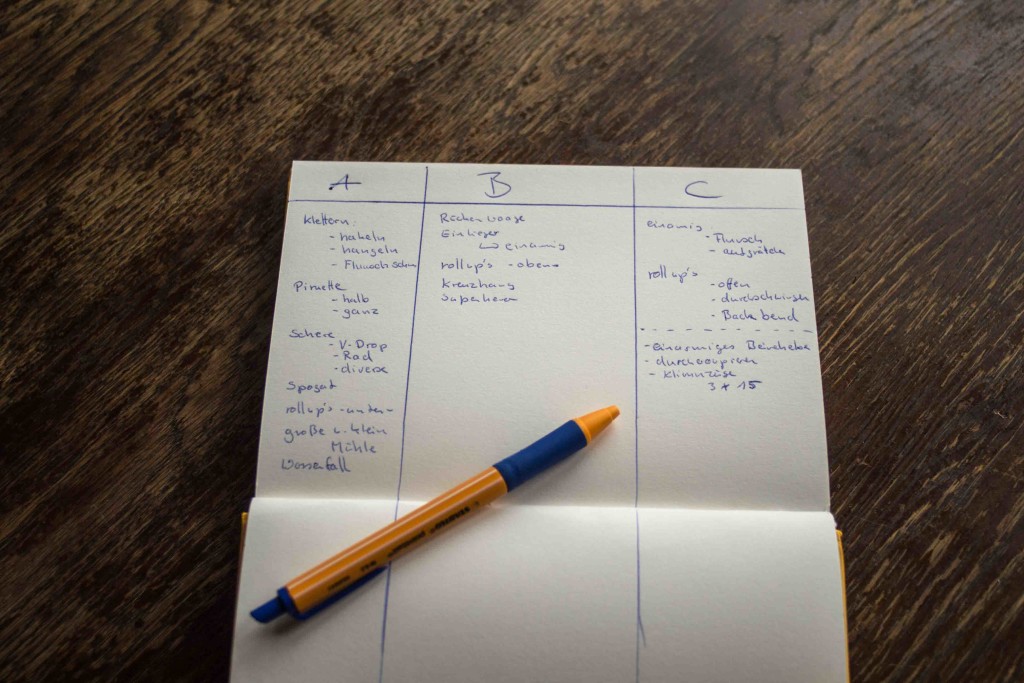 A
B
C
Klettern:
- hakeln
- hangeln
- Flunsch
Piruette
- halb
- ganz
Schere
- V-Drop
- Rad
- diverse
Spagat
rollup's -unten-
große u. klein
Mühle
Wasserfall
Rückenwaage
Einlieger
↳ einarmig
rollup's -oben-
Kreuzhang
einarmig
- Flunsch
- aufgrätschen
rollup's
- offen
- durchschwingen
- Back bend
- einarmiges Beineheben
-
- Klimmzüge
3 * 15